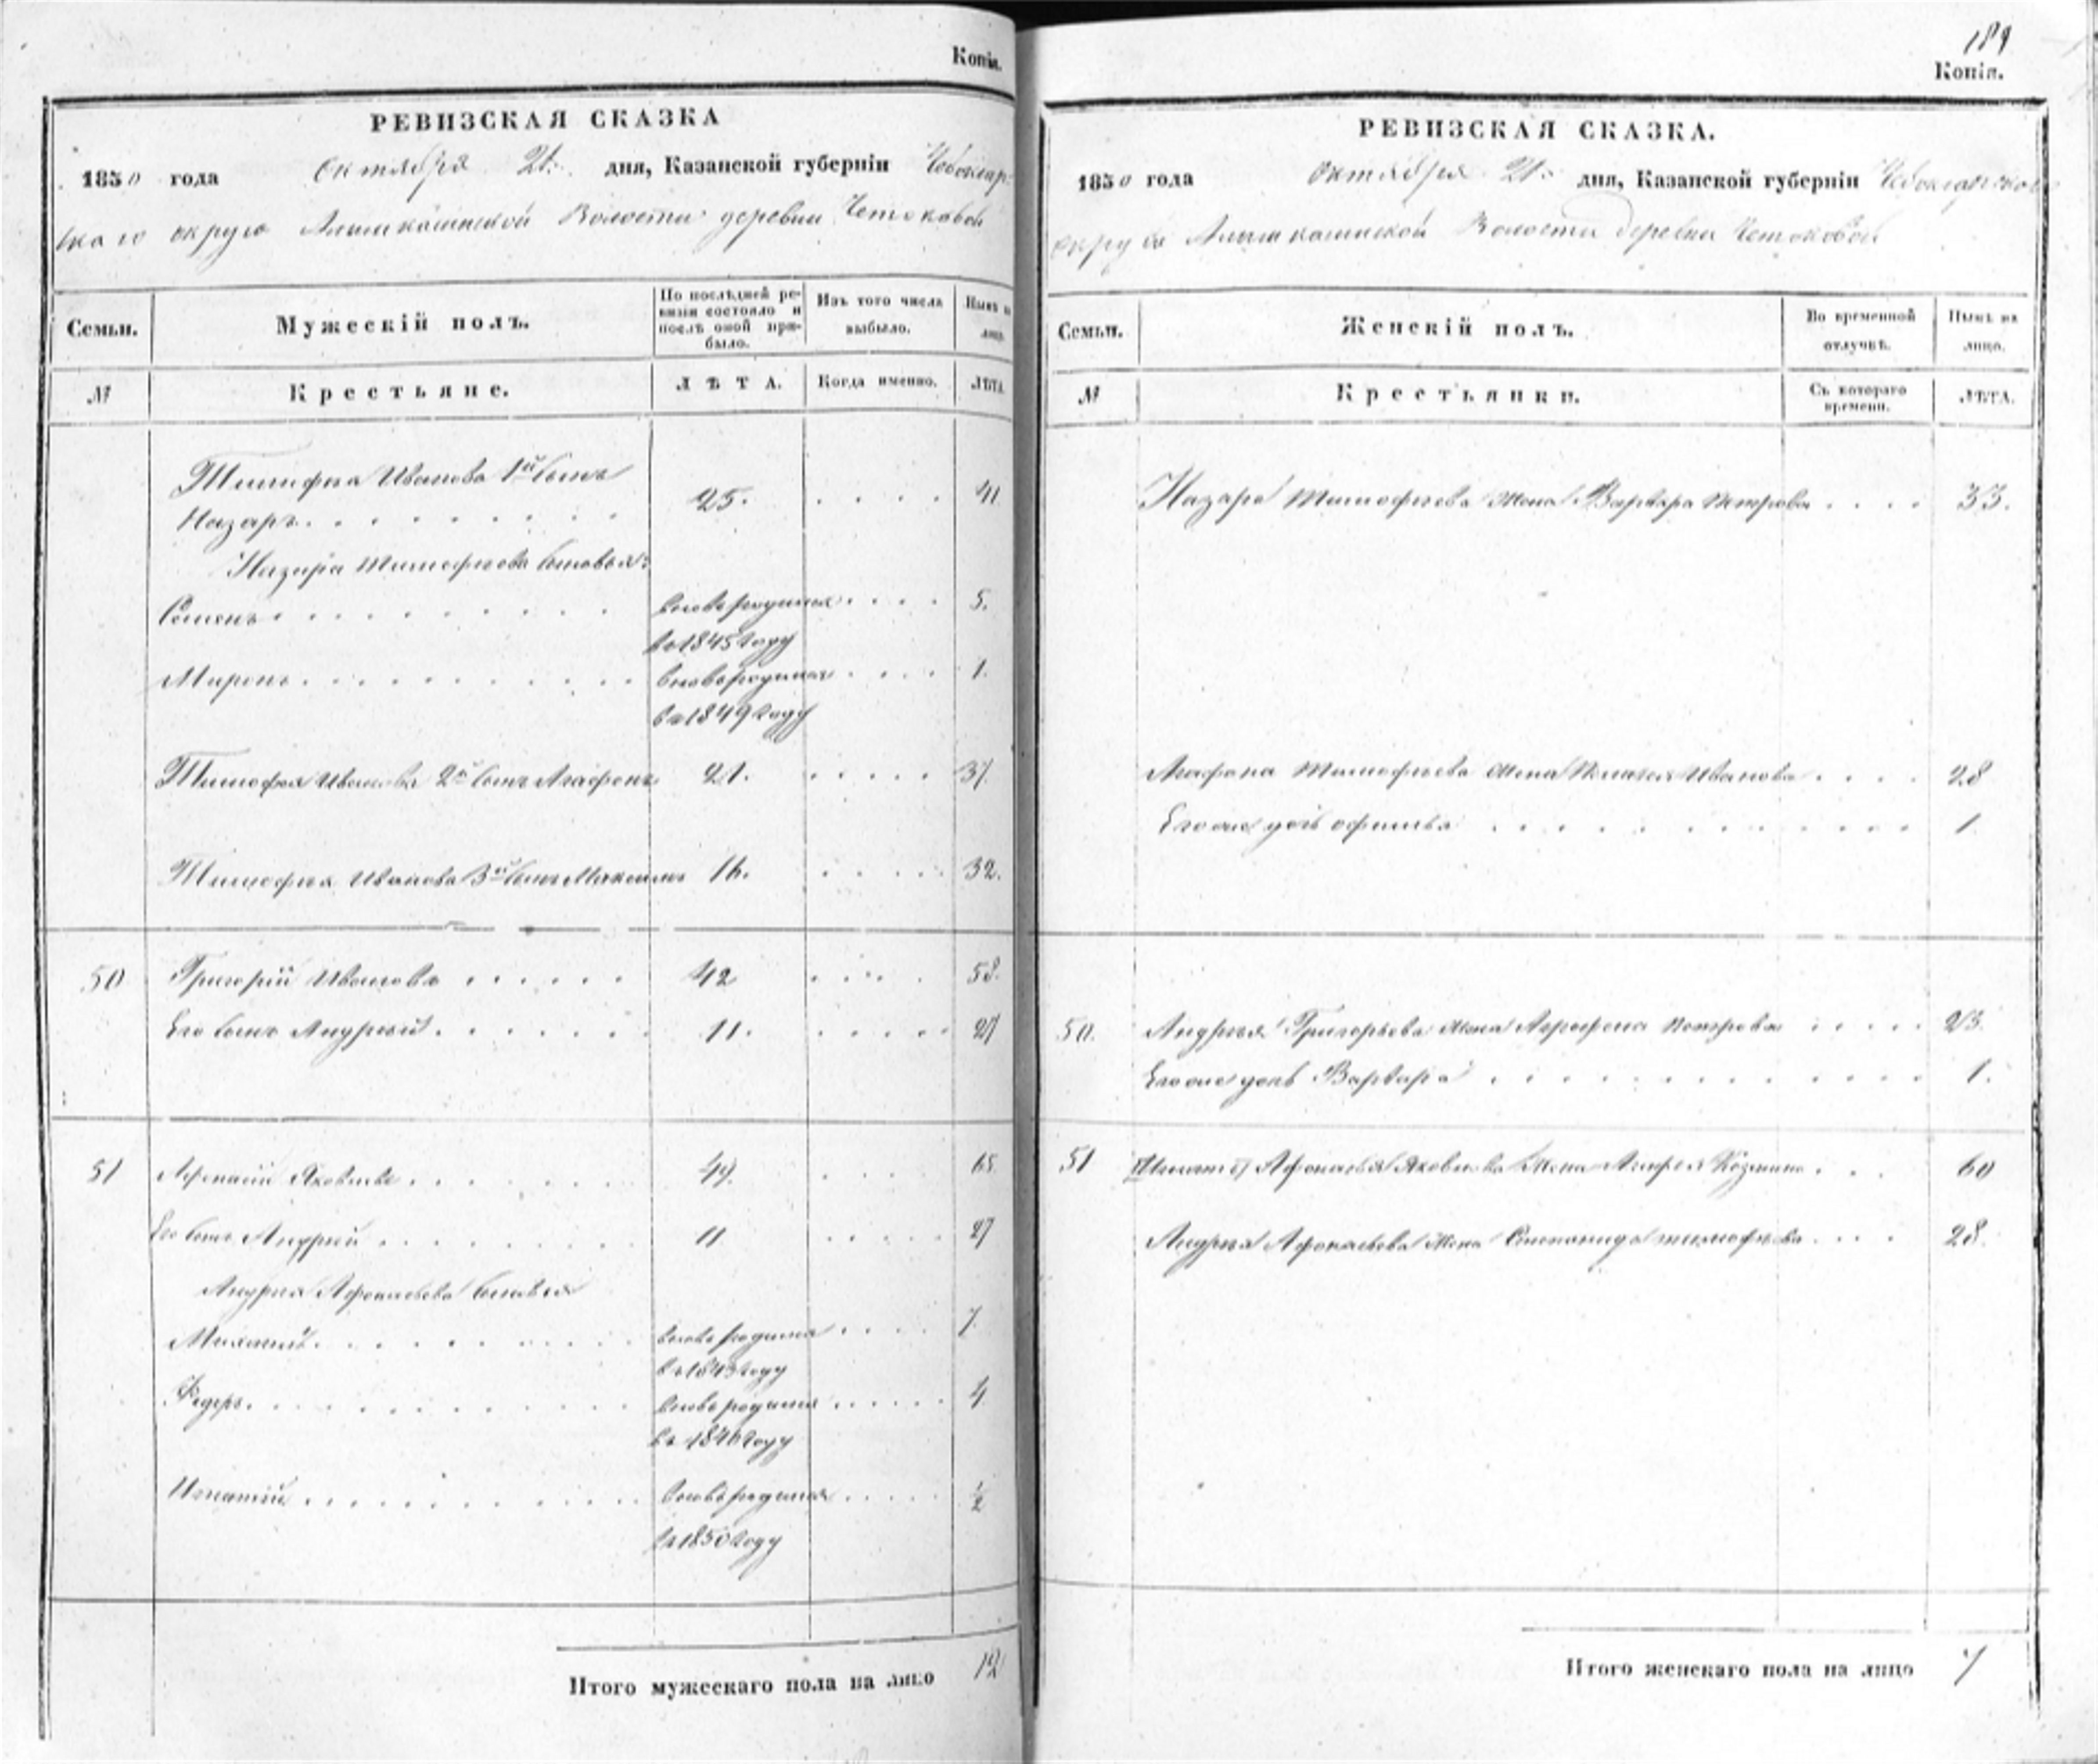 Копія.
РЕВИЗСКАЯ СКАЗКА
1850 года Октября 21. дня, Казанской губерніи Чебоксар-
скаго округа Алымкасинской Волости деревни
Семьи.
Мужескій полъ.
По послѣдней ре-
визіи состояло и
послѣ оной при-
было.
Изъ того числа
выбыло.
Нынѣ на
лицо.
№
Крестьяне.
ЛѢТА.
Когда именно.
ЛѢТА.
Тимофѣя Иванова 1й сынъ
Назаръ 25. 41
Назара Тимофѣева сыновья:
Семенъ вновь рожденъ 5.
въ 1845 году
Миронъ вновь рожденъ 1.
въ 1849 году
Тимофѣя Иванова 2й сынъ Агафонъ 21. 37.
Тимофѣя Иванова 3й сынъ Максимъ 16. 32.
50 Григорій Ивановъ 42 58.
Его сынъ Андрей 11. 27
51 Афонасій Яковлевъ 49. 65
Его сынъ Андрей 11 27
Андрея Афонасьева сыновья
Михаилъ 7.
въ 1843 году
Федоръ 4
въ 1846 году
Игнатій ½
въ 1850 году
Итого мужескаго пола на лицо 12
189
Копія.
РЕВИЗСКАЯ СКАЗКА.
1850 года Октября 21. дня, Казанской губерніи Чебоксарскаго
округа Алымкасинской Волости деревни
Семьи.
Женскій полъ.
Во временной
отлучкѣ.
Нынѣ на
лицо.
№
Крестьянки.
Съ котораго
времени.
ЛѢТА.
Назара Тимофѣева жена Варвара Петрова 33.
Агафона Тимофѣева жена Иванова 28
Его дочь 1
50. Андрея Григорьева жена Аграфена Петрова 23.
Его дочь Варвара 1.
51 Афонасья Яковлева жена Козмина 60
Андрея Афонасьева жена Степанида Тимофѣева 28.
Итого женскаго пола на лицо 7